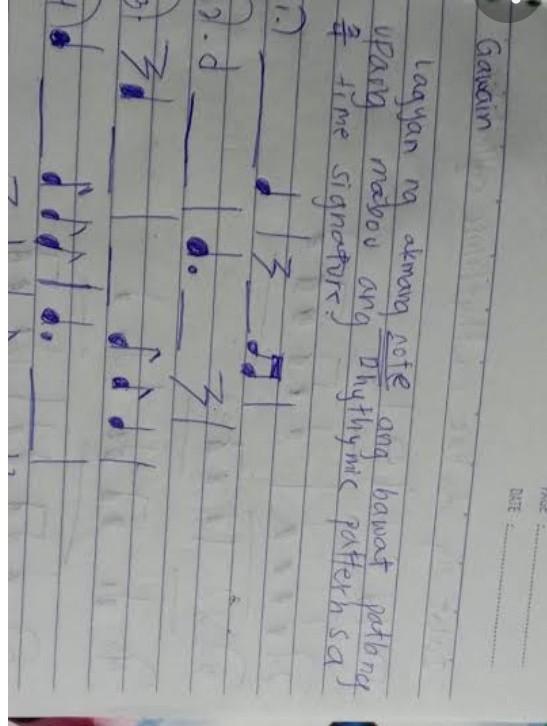 PAGE :
DATE :
Gawain
Lagyan ng akmang note ang bawat patlang
upang mabou ang Rhythmic pattern sa
3/4 time signature.
1.)
2.
3.
4)